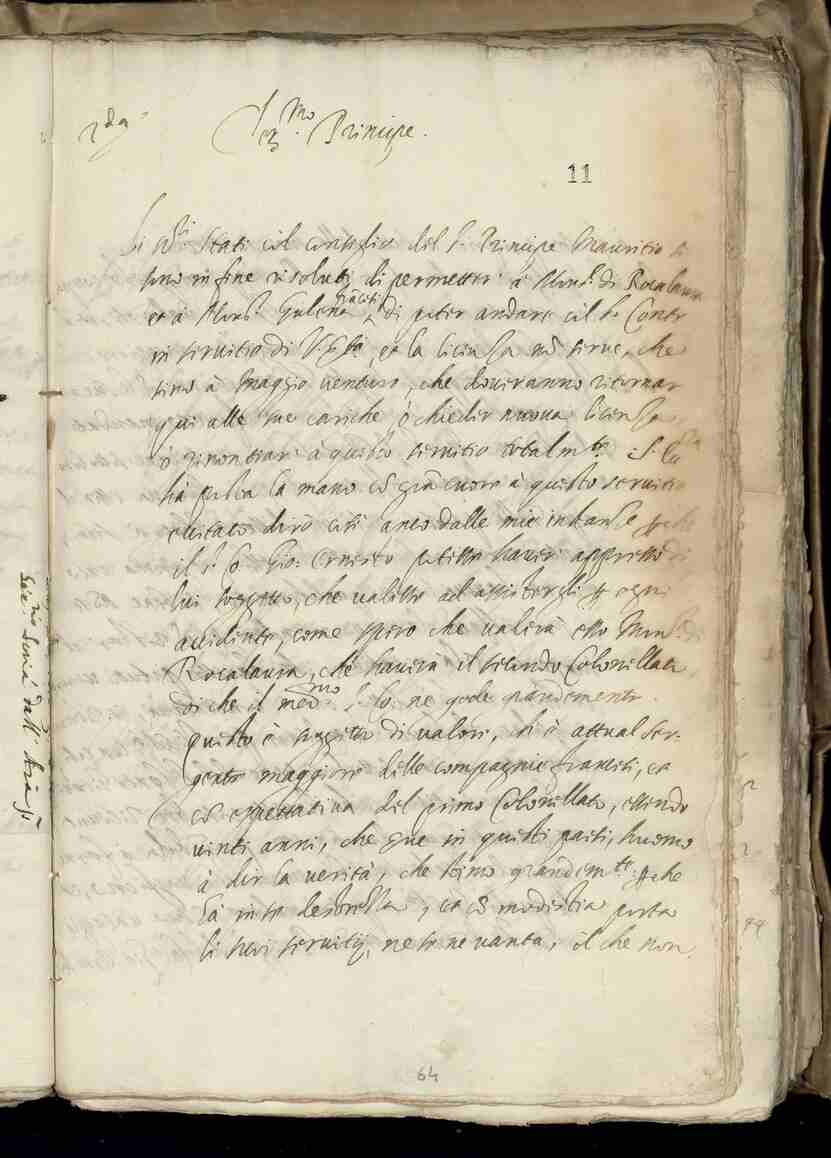 2da
Ser.mo Principe.
11
Li SS.ri Stati col consiglio del S. Principe Mauritio si
sono in fine risoluti di permetter à Mons.r di Rocalaura
et à Mons.r Gulena franciti di poter andare col S. Conte
in servitio di V. Ser.tà, et la licenza nõ serve, che
sino à Maggio venturo, che doveranno ritornar
qui alle sue cariche, ò chieder nuova licenza,
ò renontiar à questo servitio totalm.te. S. Ecc.a
hà posta la mano cõ grã cuore à questo servitio
eccitato dirò così anco dalle mie instanze, perche
il S. Co. Gio. Ernesto potesse haver appresso di
lui soggetto, che valesse ad assistergli per ogni
accidente, come spero che valerà esso Mons.r di
Rocalaura, che haverà il secondo Colonellato,
di che il med.mo S. Co. ne gode grandemente.
questo è soggetto di valore, si è attual ser-
gente maggiore delle compagnie francesi, et
cõ espettativa del primo Colonellato, essendo
vinti anni, che serve in questi paesi, huomo
à dir la verità, che stimo grandem.te perche
sà in se destrezza, et cõ modestia porta
li suoi servitij, ne se ne vanta, il che non
64
Sec.rio Scria dall' Aia